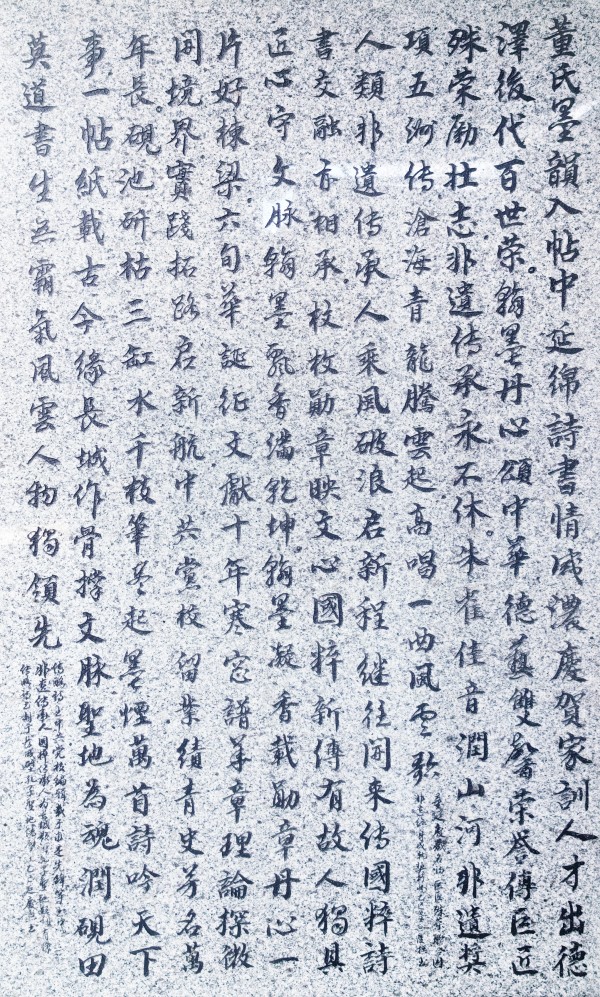 董氏墨韻入帖中延綿詩書情咸濃慶賀家訓人才出德
澤後代百世荣翰墨丹心頌中華德藝雙馨荣誉傳匠匠
殊荣励壮志非遺传承永不休朱雀佳音潤山河非遺奖
項五洲传滄海青龍騰雲起高唱一曲风雲歌
人類非遺传承人乘風破浪启新程继往開来传國粹詩
書交融亦相承枝枚勛章映文心國粹新傳有故人獨具
匠心守文脉翰墨飄香播乾坤翰墨凝香载勛章丹心一
片好棟梁六旬華誕征文獻十年寒窓譜華章理論探微
開境界實踐拓路启新航中共党校留業績青史芳名萬
年長硯池研枯三缸水千枝筆尽起墨煙萬首詩吟天下
事一帖紙載古今缘長城作骨撑文脉聖地為魂潤硯田
莫道書生无霸氣風雲人物獨領先